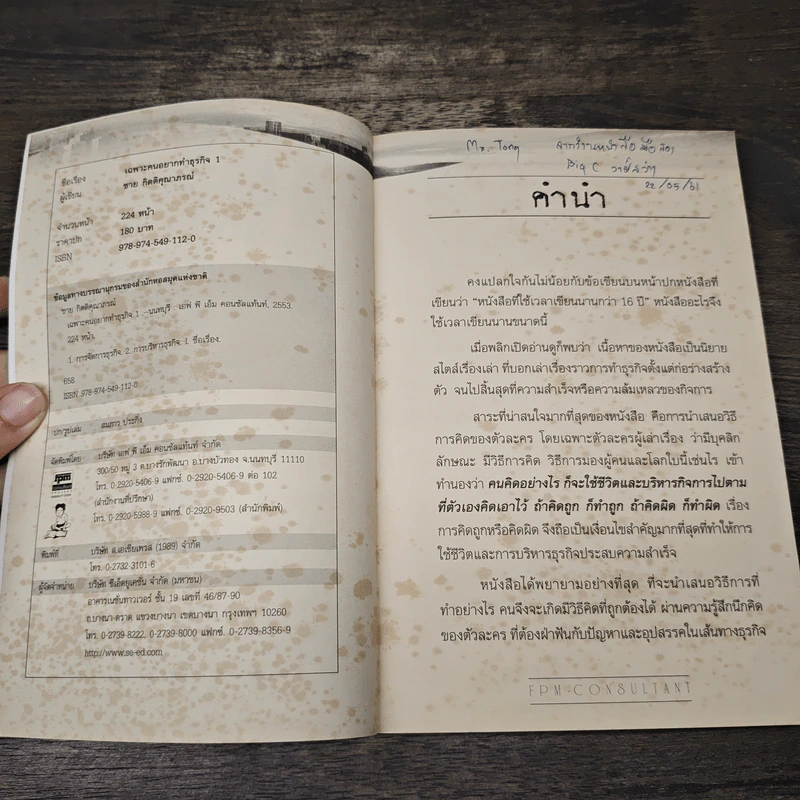 ชื่อเรื่อง เฉพาะคนอยากทำธุรกิจ 1
ผู้เขียน ชาย กิตติคุณาภรณ์
จำนวนหน้า 224 หน้า
ราคาปก 180 บาท
ISBN 978-974-549-112-0
ข้อมูลทางบรรณานุกรมของสำนักหอสมุดแห่งชาติ
ชาย กิตติคุณาภรณ์
เฉพาะคนอยากทำธุรกิจ 1 --นนทบุรี : เอฟ พี เอ็ม คอนซัลแท้นท์, 2553.
224 หน้า.
1. การจัดการธุรกิจ 2. การบริหารธุรกิจ. I. ชื่อเรื่อง.
658
ISBN 978-974-549-112-0
ปก/รูปเล่ม สมการ ประกิ่ง
จัดพิมพ์โดย บริษัท เอฟ พี เอ็ม คอนซัลแท้นท์ จำกัด
300/50 หมู่ 3 ต.บางรักพัฒนา อ.บางบัวทอง จ.นนทบุรี 11110
โทร. 0-2920-5406-9 แฟกซ์. 0-2920-5406-9 ต่อ 102
(สำนักงานที่ปรึกษา)
โทร. 0-2920-5988-9 แฟกซ์. 0-2920-9503 (สำนักพิมพ์)
fpm
พิมพ์ที่ บริษัท ส.เอเซียเพรส (1989) จำกัด
โทร. 0-2732-3101-6
ผู้จัดจำหน่าย บริษัท ซีเอ็ดยูเคชั่น จำกัด (มหาชน)
อาคารเนชั่นทาวเวอร์ ชั้น 19 เลขที่ 46/87-90
ถ.บางนา-ตราด แขวงบางนา เขตบางนา กรุงเทพฯ 10260
โทร. 0-2739-8222, 0-2739-8000 แฟกซ์. 0-2739-8356-9
http://www.se-ed.com
Mr. Tong
Big C
22/05/61
คำนำ
คงแปลกใจกันไม่น้อยกับข้อเขียนบนหน้าปกหนังสือที่
เขียนว่า “หนังสือที่ใช้เวลาเขียนนานกว่า 16 ปี” หนังสืออะไรจึง
ใช้เวลาเขียนนานขนาดนี้
เมื่อพลิกเปิดอ่านดูก็พบว่า เนื้อหาของหนังสือเป็นนิยาย
สไตล์เรื่องเล่า ที่บอกเล่าเรื่องราวการทำธุรกิจตั้งแต่ก่อร่างสร้าง
ตัว จนไปสิ้นสุดที่ความสำเร็จหรือความล้มเหลวของกิจการ
สาระที่น่าสนใจมากที่สุดของหนังสือ คือการนำเสนอวิธี
การคิดของตัวละคร โดยเฉพาะตัวละครผู้เล่าเรื่อง ว่ามีบุคลิก
ลักษณะ มีวิธีการคิด วิธีการมองผู้คนและโลกใบนี้เช่นไร เข้า
ทำนองว่า คนคิดอย่างไร ก็จะใช้ชีวิตและบริหารกิจการไปตาม
ที่ตัวเองคิดเอาไว้ ถ้าคิดถูก ก็ทำถูก ถ้าคิดผิด ก็ทำผิด เรื่อง
การคิดถูกหรือคิดผิด จึงถือเป็นเงื่อนไขสำคัญมากที่สุดที่ทำให้การ
ใช้ชีวิตและการบริหารธุรกิจประสบความสำเร็จ
หนังสือได้พยายามอย่างที่สุด ที่จะนำเสนอวิธีการที่
ทำอย่างไร คนจึงจะเกิดมีวิธีคิดที่ถูกต้องได้ ผ่านความรู้สึกนึกคิด
ของตัวละคร ที่ต้องฝ่าฟันกับปัญหาและอุปสรรคในเส้นทางธุรกิจ
FPM-CONSULTANT